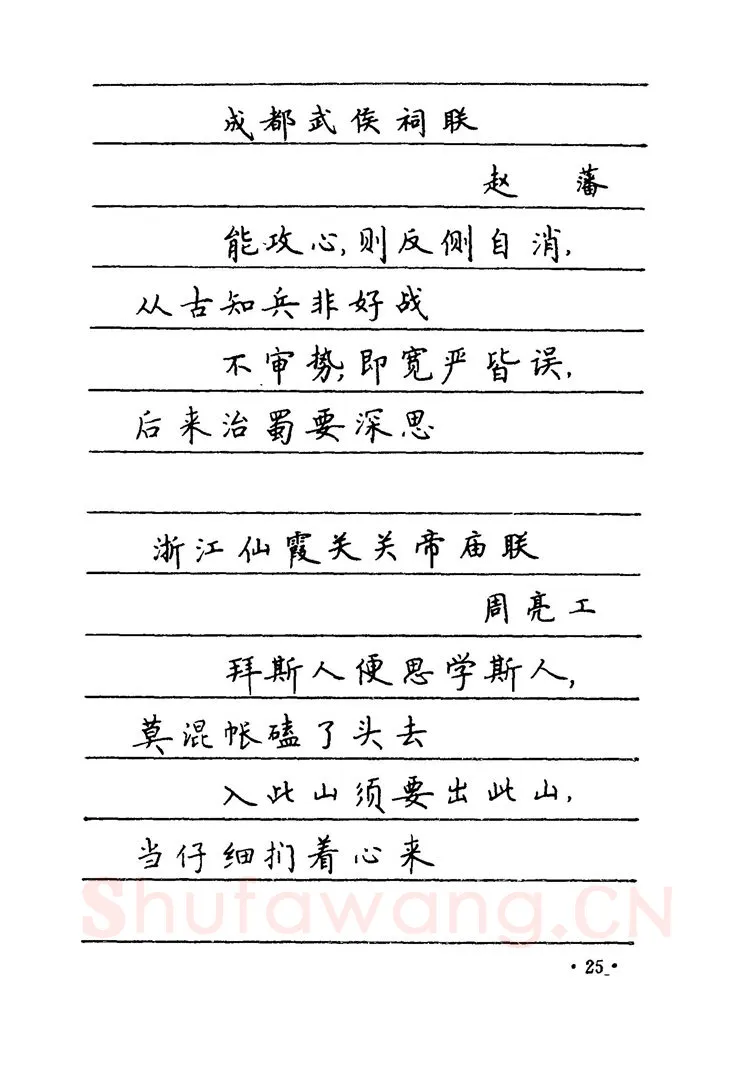 成都武侯祠联
赵 藩
能攻心,则反侧自消,
从古知兵非好战
不审势,即宽严皆误,
后来治蜀要深思
浙江仙霞关关帝庙联
周亮工
拜斯人便思学斯人,
莫混帐磕了头去
入此山须要出此山,
当仔细扪着心来
Shufawang.CN
·25·